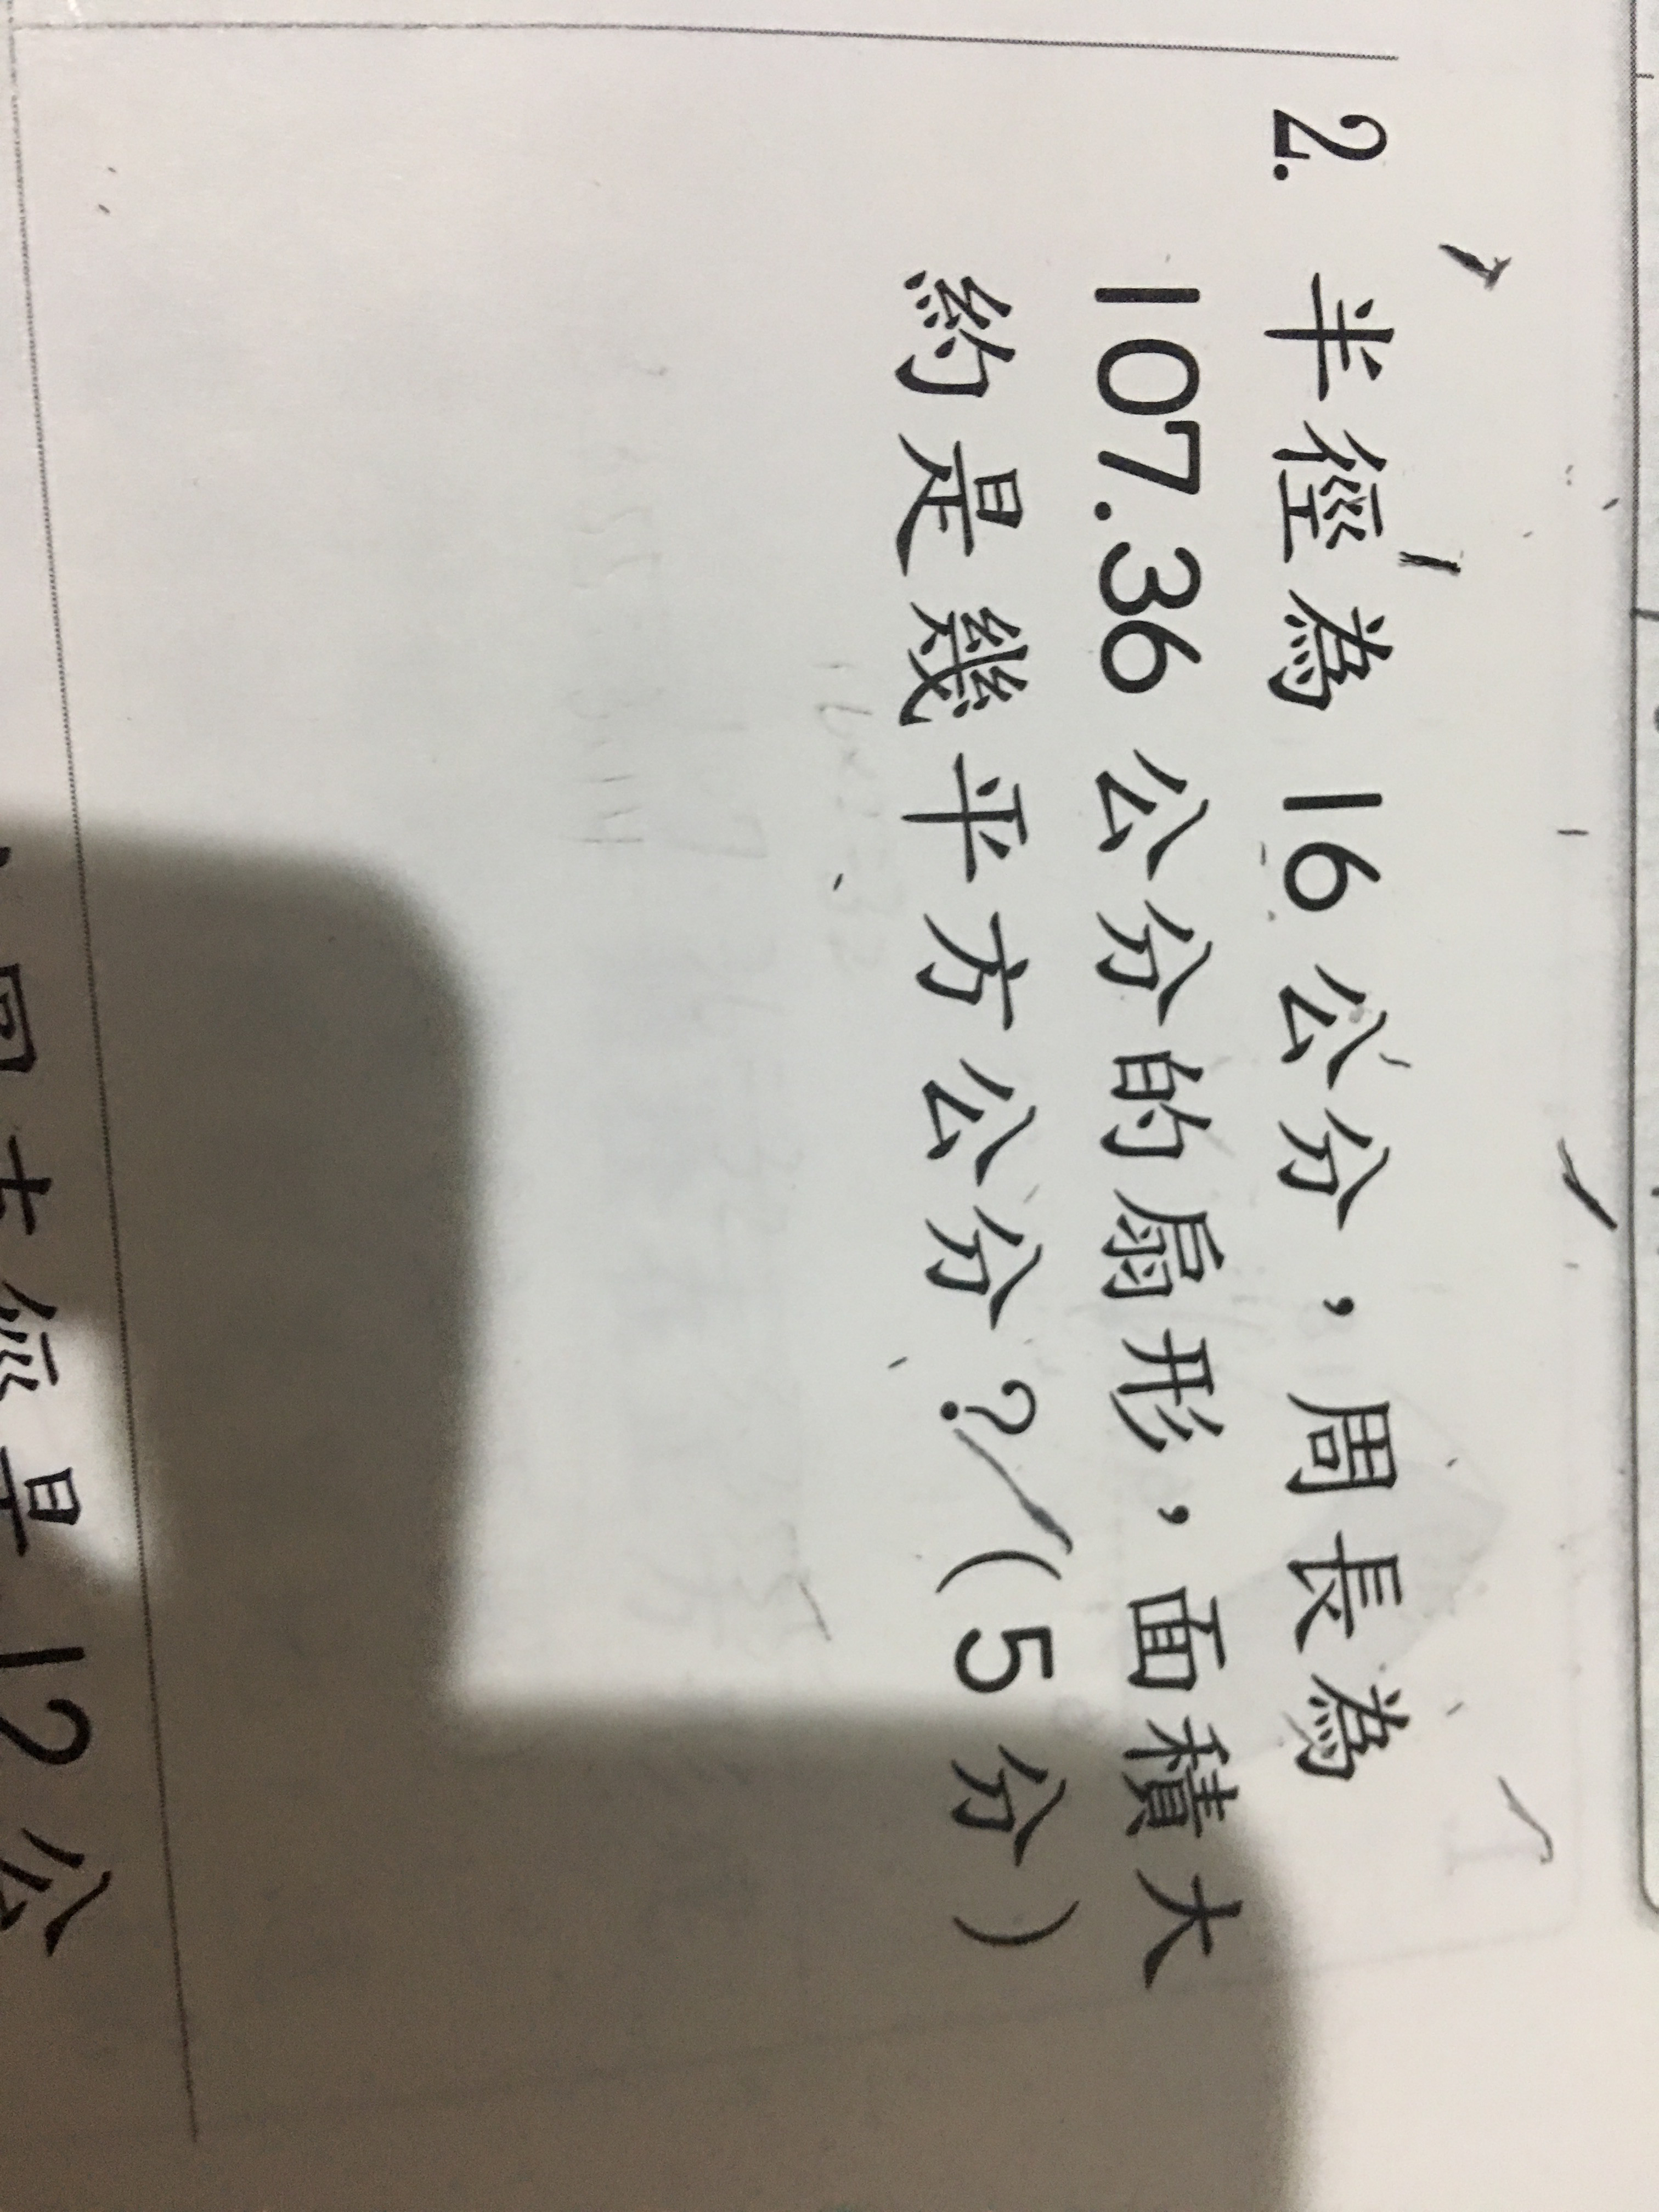 2. 半徑為 16 公分，周長為
107.36 公分的扇形，面積大
約是幾平方公分？(5 分)
12 公